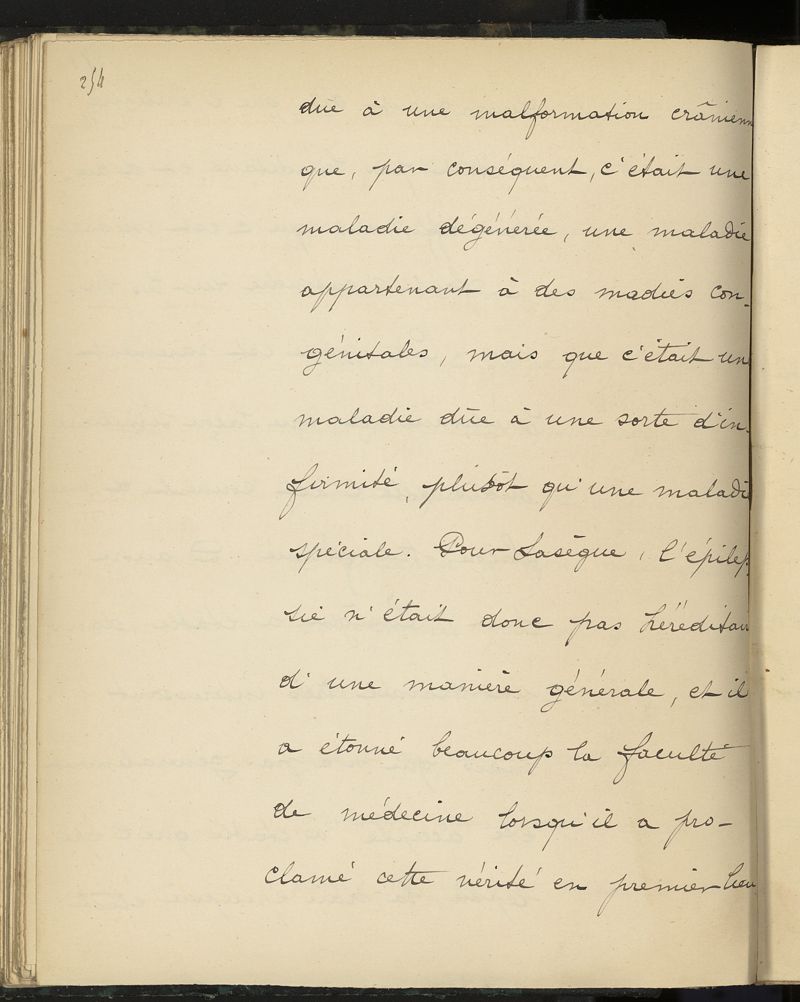 254
dûe à une malformation crânienn
que, par conséquent, c'était une
maladie dégénérée, une maladie
appartenant à des madiés con-
génitales, mais que c'était un
maladie dûe à une sorte d'in-
firmité, plutôt qu'une maladi
spéciale. Pour Lasègue, l'épilep
sie n'était donc pas héréditair
d'une manière générale, et il
a étonné beaucoup la faculté
de médecine lorsqu'il a pro-
clamé cette vérité en premier lieu